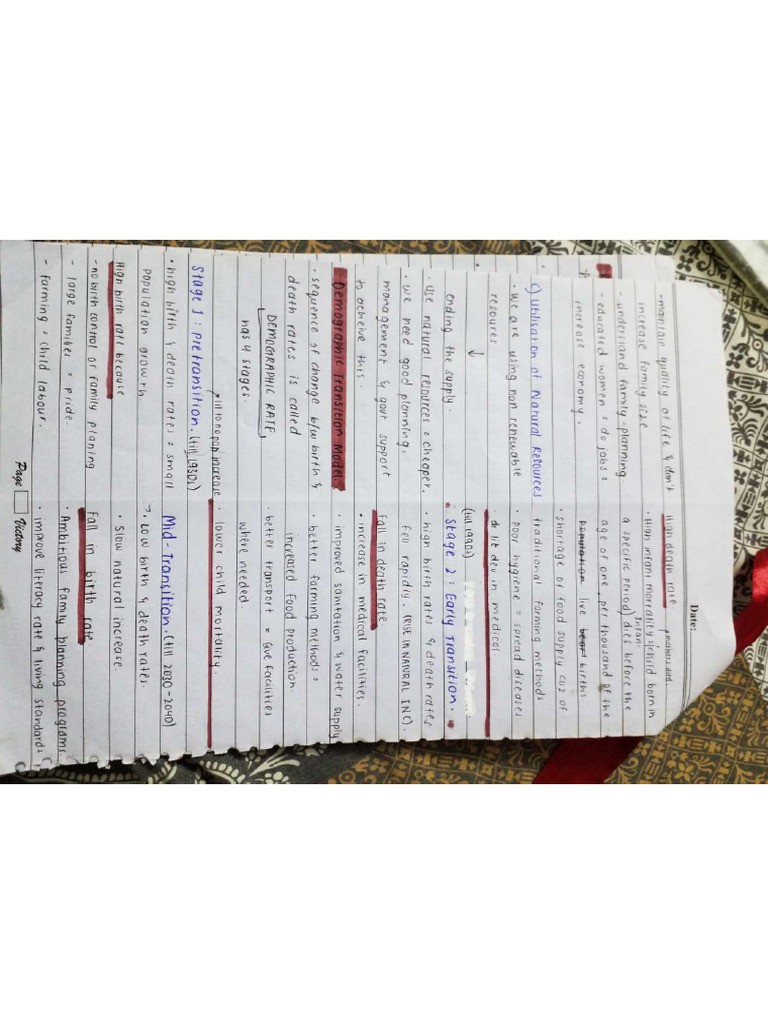 Date:
-maintain quality of life & don't
increase family size
- understand family-planning
- educated women = do jobs =
increase economy.
c) Utilisation of Natural Resources
• We are using non renewable
resources
↓
ending the supply.
• Use natural resources = cheaper.
• we need good planning,
management & govt support
to acheive this.
Demographic Transition Model
• sequence of change b/w birth &
death rates is called
DEMOGRAPHIC RATE,
has 4 stages.
till 10 no pop increase
Stage 1 : pretransition. (till 1930s)
• high birth & death rates = small
population growth
High birth rate because
- no birth control or family planing
- large families = pride.
- farming = child labour.
High death rate.
• High infant mortality = (child born in
a specific period) dies before the
Infant:
age of one, per thousand of the
Population live births
• shortage of food supply cuz of
traditional farming methods
• Poor hygiene = spread diseases
• lit dev in medical.
(till 1990s)
Stage 2 : Early Transition.
• high birth rates & death rates
fell rapidly. (RISE IN NATURAL INC).
Fall in death rate.
• increase in medical facilities.
• improved sanitation & water supply
• better farming methods =
increased food production
• better transport = give facilities
where needed
• lower child mortality.
Mid-Transition. (till 2030-2040)
• Low birth & death rates.
• Slow natural increase.
Fall in birth rate
• Ambitious family planning programs
• improve literacy rate & living standards
Page Victory